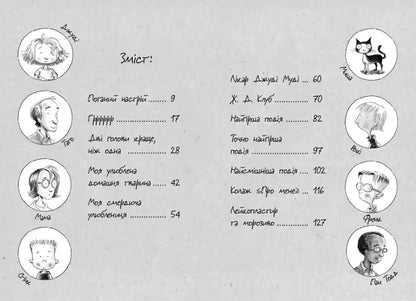 Джуді
Тато
Мама
Стінк
Зміст:
Поганий настрій ....... 9
Гррррр ....... 17
Дві голови краще,
ніж одна ....... 28
Моя улюблена
домашня тварина ....... 42
Моя смердюча
улюблениця ....... 54
Лікар Джуді Муді ... 60
Ж. Д. Клуб ....... 70
Найгірша подія ....... 82
Точно найгірша
подія ....... 97
Найсмішніша подія ..... 102
Колаж «Про мене» ... 116
Лейкопластир
та морозиво ....... 127
Роккі
Френк
Пан Тодд